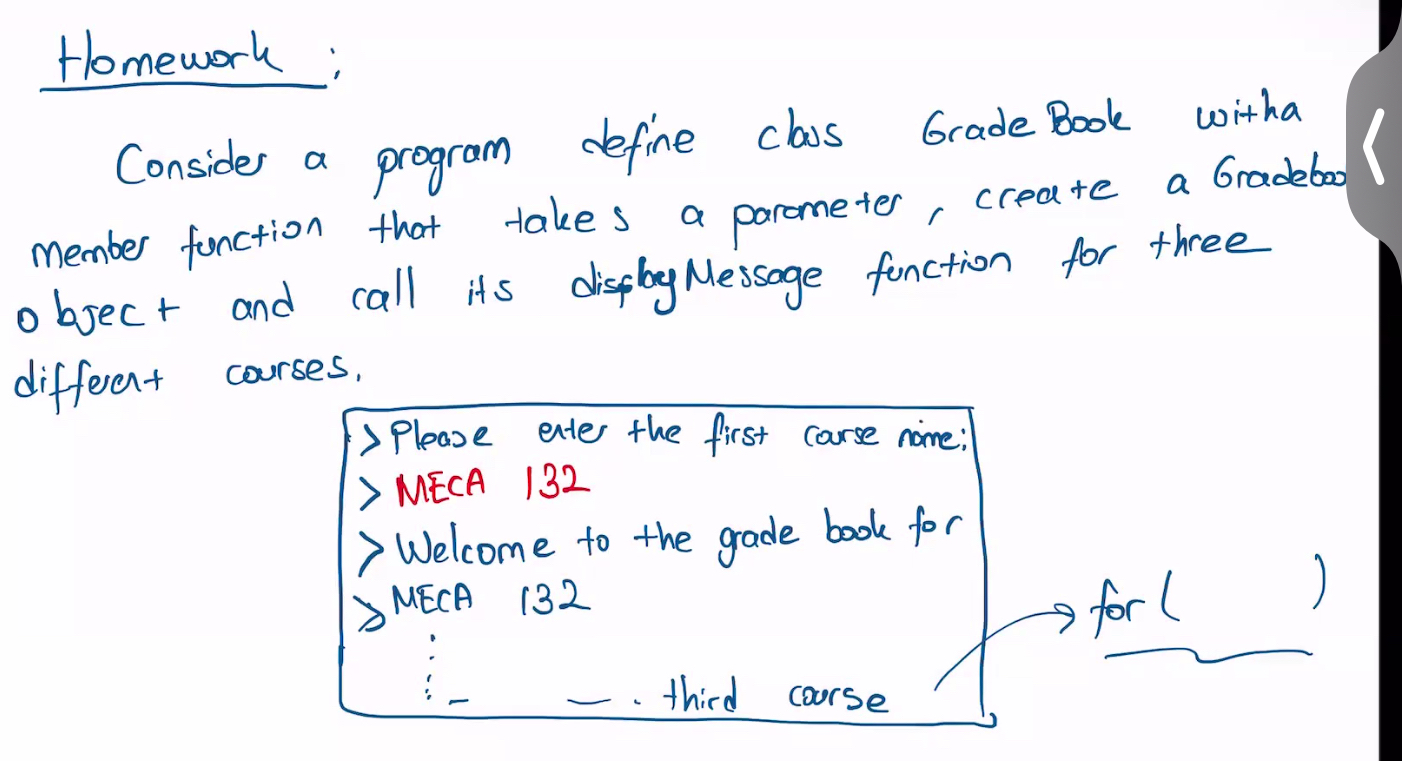 Homework :
Consider a program define class GradeBook with a
member function that takes a parameter, create a Gradeboo
object and call its displayMessage function for three
different courses.
> Please enter the first course name:
> MECA 132
> Welcome to the grade book for
> MECA 132
third course
for ( )